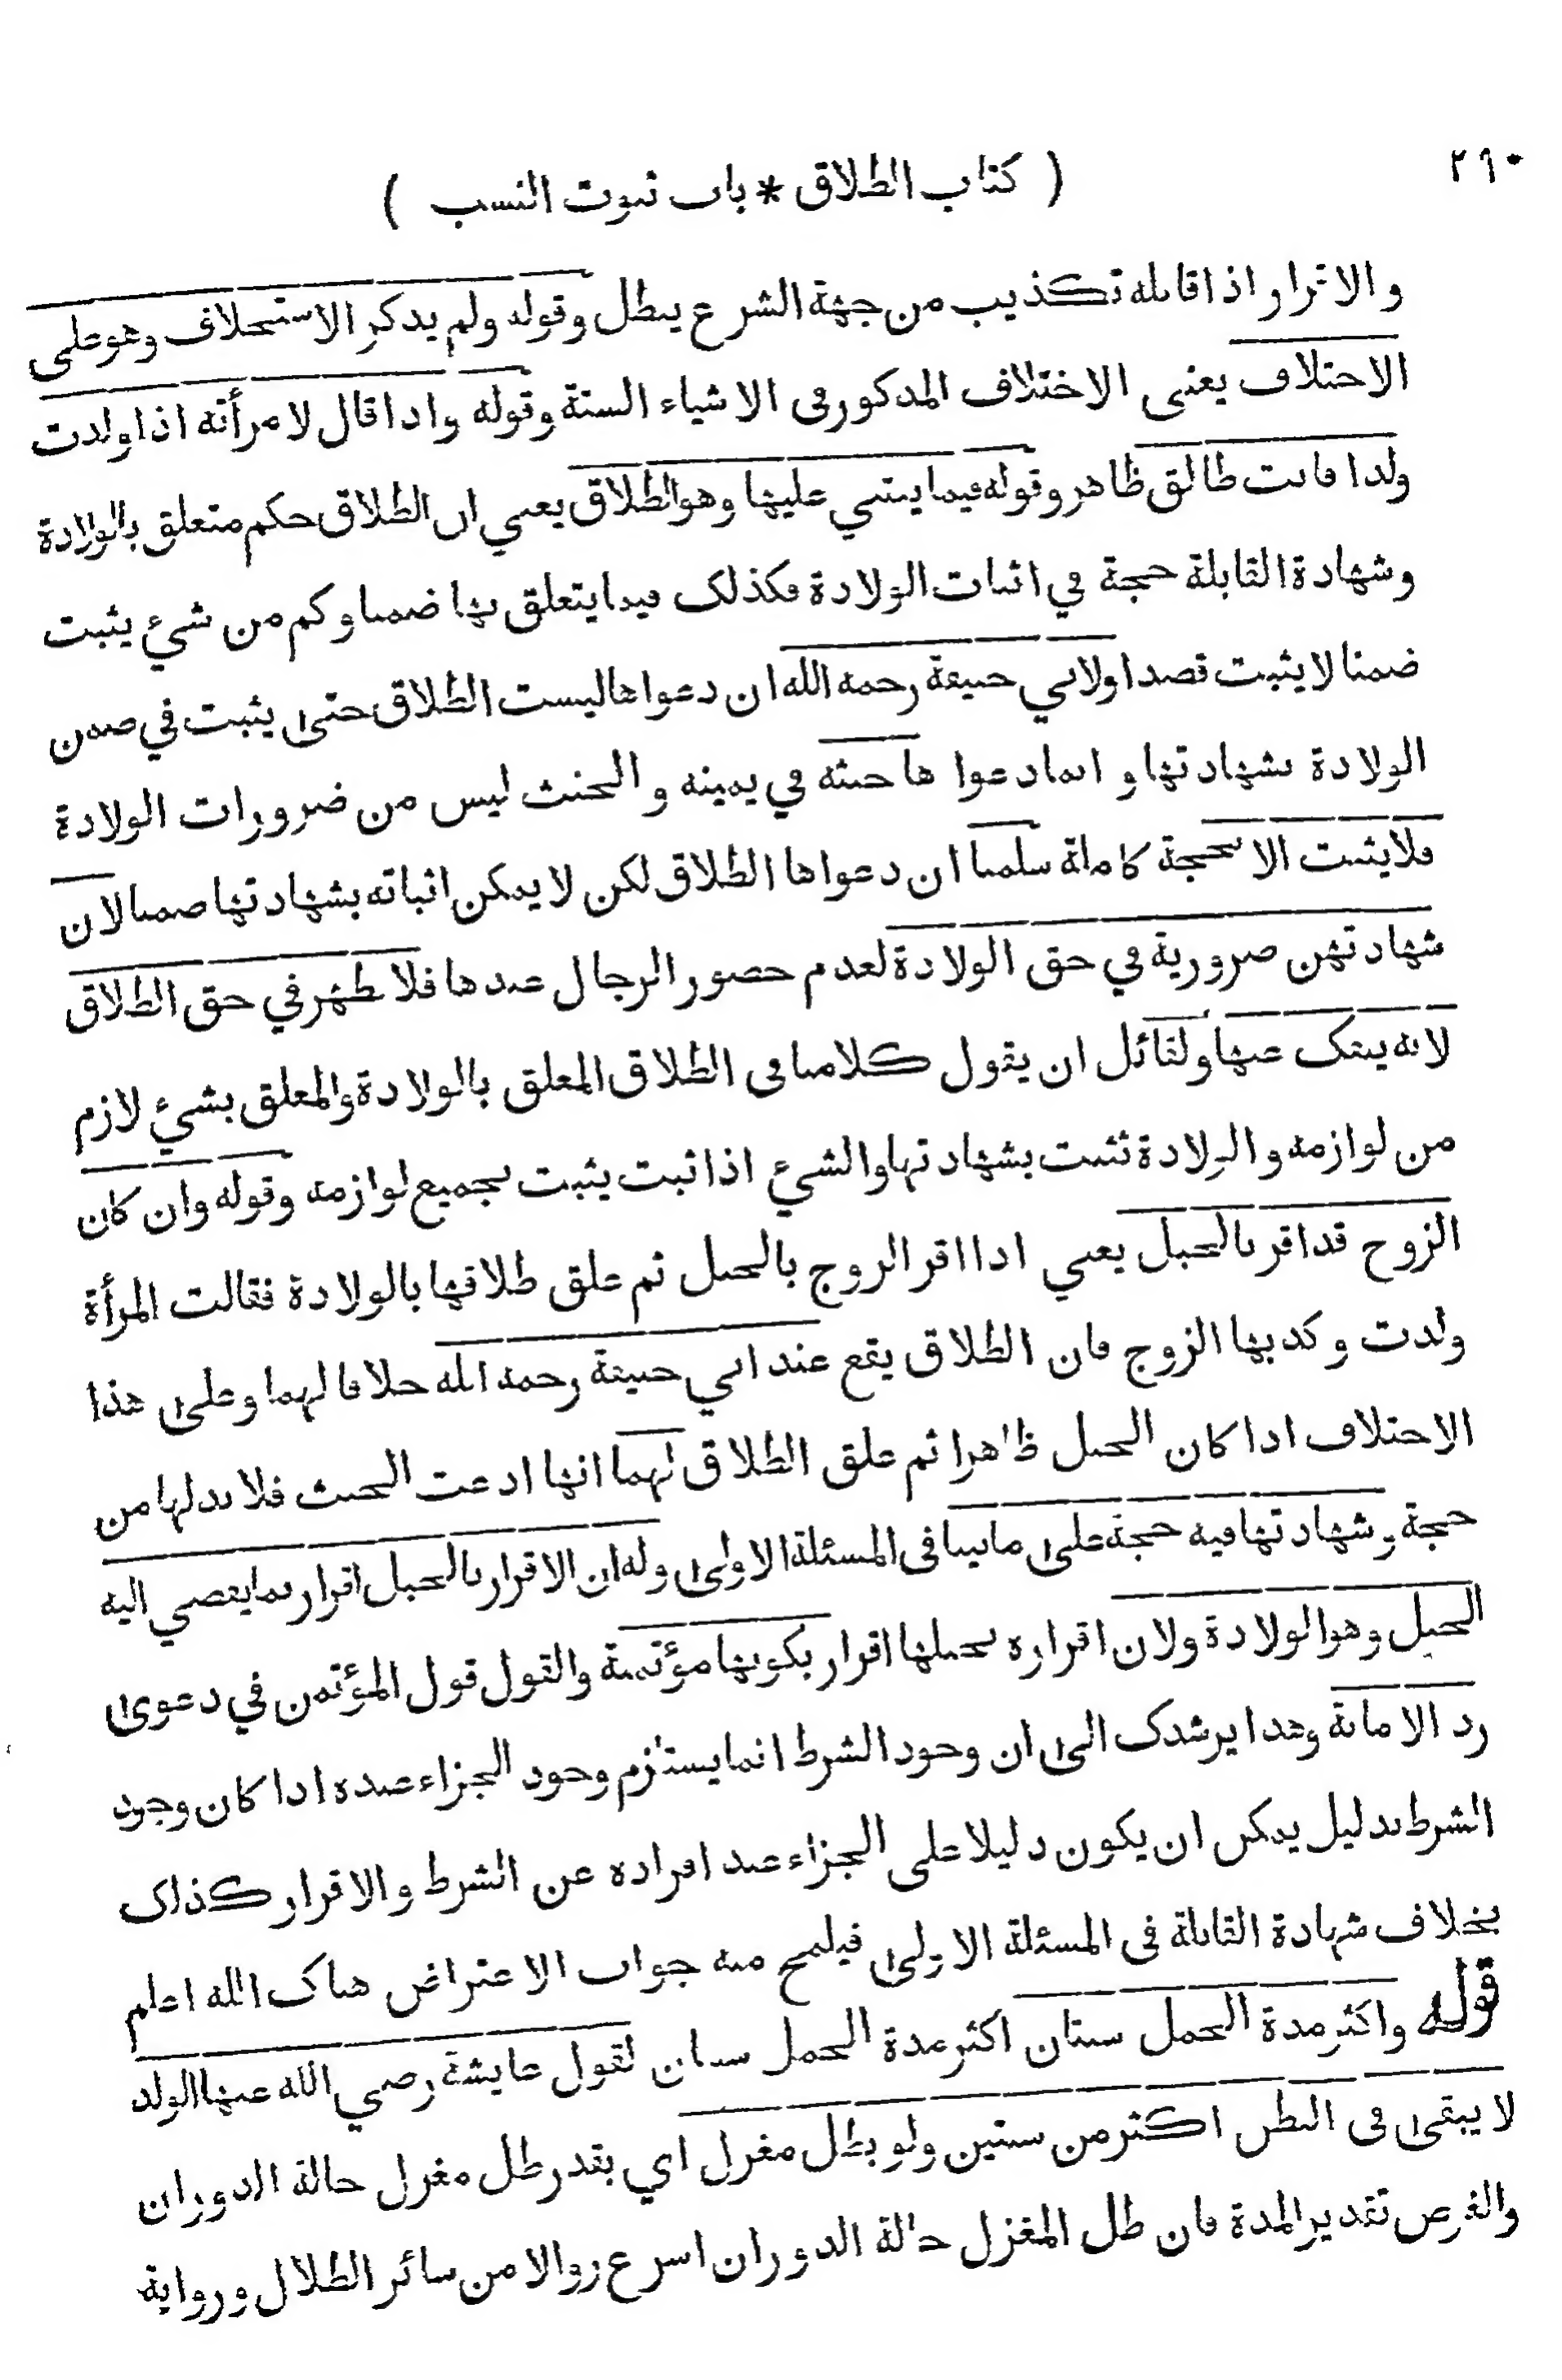 ٢٩٠
( كتاب الطلاق * باب ثبوت النسب )
والاقرار اذا قابله تكذيب من جهة الشرع يبطل وقوله ولم يذكر الاستحلاف وهو على
الاختلاف يعنى الاختلاف المذكور فى الاشياء الستة وقوله واذا قال لامرأته اذا ولدت
ولدا فانت طالق ظاهر وقوله فيما يبتني عليها وهو الطلاق يعني ان الطلاق حكم متعلق بالولادة
وشهادة القابلة حجة في اثبات الولادة فكذلك فيما يتعلق بها ضمنا وكم من شيء يثبت
ضمنا لا يثبت قصدا ولابي حنيفة رحمه الله ان دعواها ليست الطلاق حتى يثبت في ضمن
الولادة بشهادتها و انما دعوا ها حنثه في يمينه و الحنث ليس من ضرورات الولادة
فلا يثبت الا بحجة كاملة سلمنا ان دعواها الطلاق لكن لا يمكن اثباته بشهادتها ضمنا لان
شهادتهن ضرورية في حق الولادة لعدم حضور الرجال عندها فلا تظهر في حق الطلاق
لانه ينفك عنها ولقائل ان يقول كلامنا فى الطلاق المعلق بالولادة والمعلق بشيء لازم
من لوازمه و الولادة تثبت بشهادتها والشيء اذا ثبت يثبت بجميع لوازمه وقوله وان كان
الزوج قد اقر بالحبل يعني اذا اقر الزوج بالحبل ثم علق طلاقها بالولادة فقالت المرأة
ولدت وكذبها الزوج فان الطلاق يقع عند ابي حنيفة رحمه الله خلافا لهما وعلى هذا
الاختلاف اذا كان الحبل ظاهرا ثم علق الطلاق لهما انها ادعت الحنث فلا بد لها من
حجة وشهادتها فيه حجة على ما بينا فى المسئلة الاولى وله ان الاقرار بالحبل اقرار بما يفضي اليه
الحبل وهو الولادة ولان اقراره بحملها اقرار بكونها مؤتمنة والقول قول المؤتمن في دعوى
رد الامانة وهذا يرشدك الى ان وجود الشرط انما يستلزم وجود الجزاء عنده اذا كان وجود
الشرط بدليل يمكن ان يكون دليلا على الجزاء عند افراده عن الشرط والاقرار كذلك
بخلاف شهادة القابلة فى المسئلة الاولى فيلمح منه جواب الاعتراض هناك الله اعلم
قوله واكثر مدة الحمل سنتان اكثر مدة الحمل سنتان لقول عايشة رضي الله عنها الولد
لا يبقى فى البطن اكثر من سنتين ولو بظل مغزل اي بقدر ظل مغزل حالة الدوران
والغرض تقدير المدة فان ظل المغزل حالة الدوران اسرع زوالا من سائر الظلال ورواية